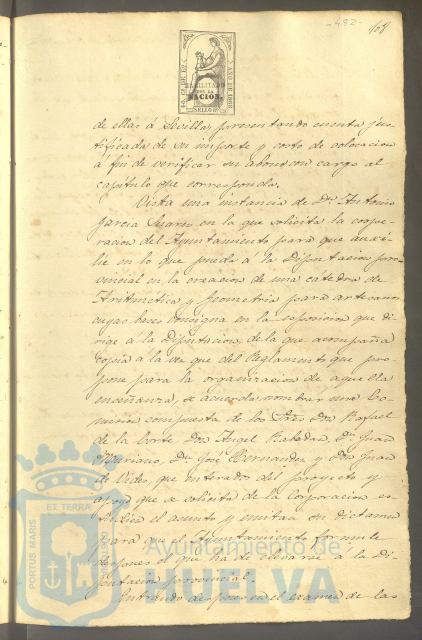 -482-
168
HABILITADO
POR LA
NACION.
AÑO DE 1868
SELLO 9º
de ellas á Sevilla, presentando cuenta jus-
tificada de su importe y costo de colocacion
á fin de verificar su abono con cargo al
capítulo que corresponda.
Vista una instancia de Dn. Antonio
Garcia Suarez en la que solicita la coope-
racion del Ayuntamiento para que auxi-
lie en lo que pueda á la Diputacion pro-
vincial en la creacion de una cátedra de
Aritmetica y Geometria para artesanos
cuyas bases consigna en la esposicion que di-
rige á la Diputacion, de la que acompaña
copia á la vez que del Reglamento que pro-
pone para la organizacion de aquella
enseñanza, se acuerda nombrar una Co-
mision compuesta de los Sres Dn. Rafael
de la Corte Dn. Angel Rabadan, Dn. Juan
Mauriano, Dn. José Hernandez y Dn. Juan
de Vides, que enterados del proyecto y
apoyo que se solicita de la Corporacion es-
tudien el asunto y emitan su dictamen
para que el Ayuntamiento formule
despues el que ha de elevarse á la Di-
putacion provincial.
Entrando despues en el examen de las
PORTUS MARIS
ET TERRÆ
CUSTODIA
Ayuntamiento de
HUELVA